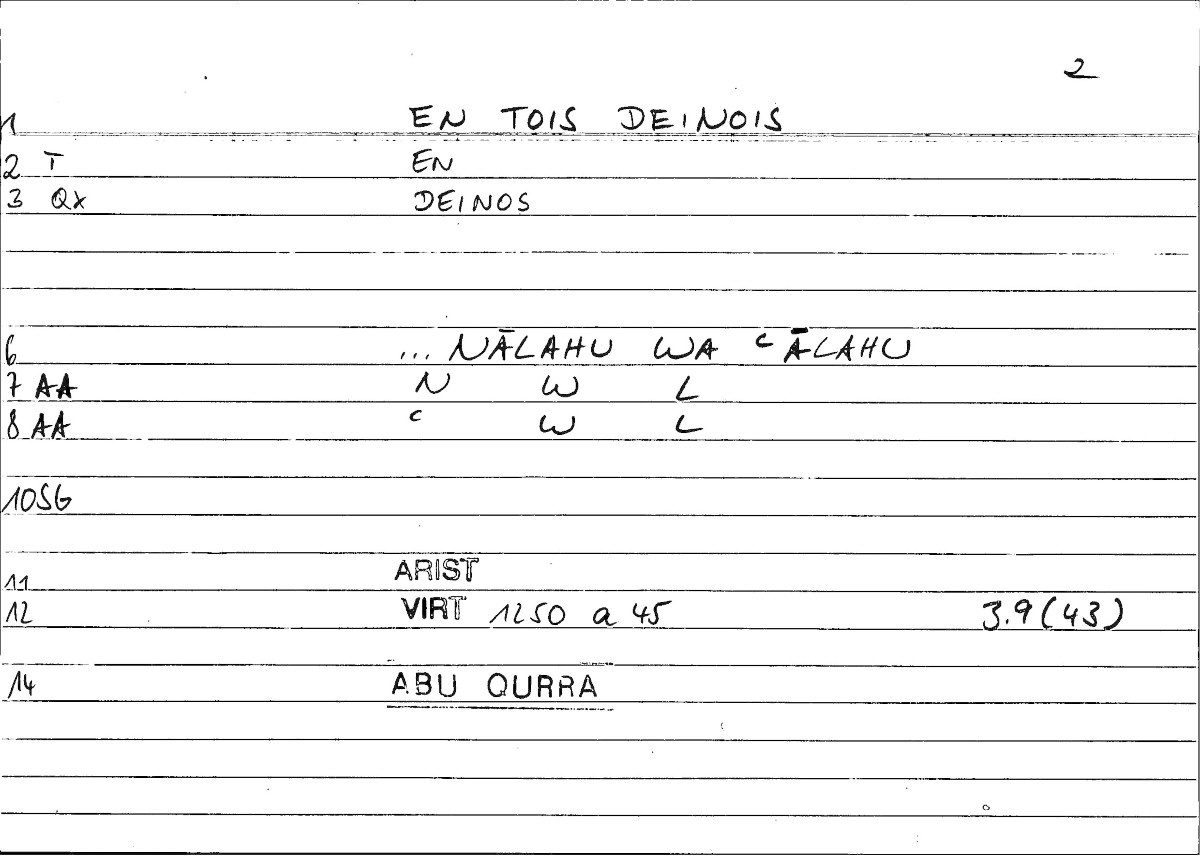 2
1 EN TOIS DEINOIS
2 T EN
3 Qx DEINOS
6 ... NĀLAHU WA ᶜĀLAHU
7 AA N W L
8 AA ᶜ W L
10 SG
11 ARIST
12 VIRT 1250 a 45 3.9 (43)
14 ABU QURRA